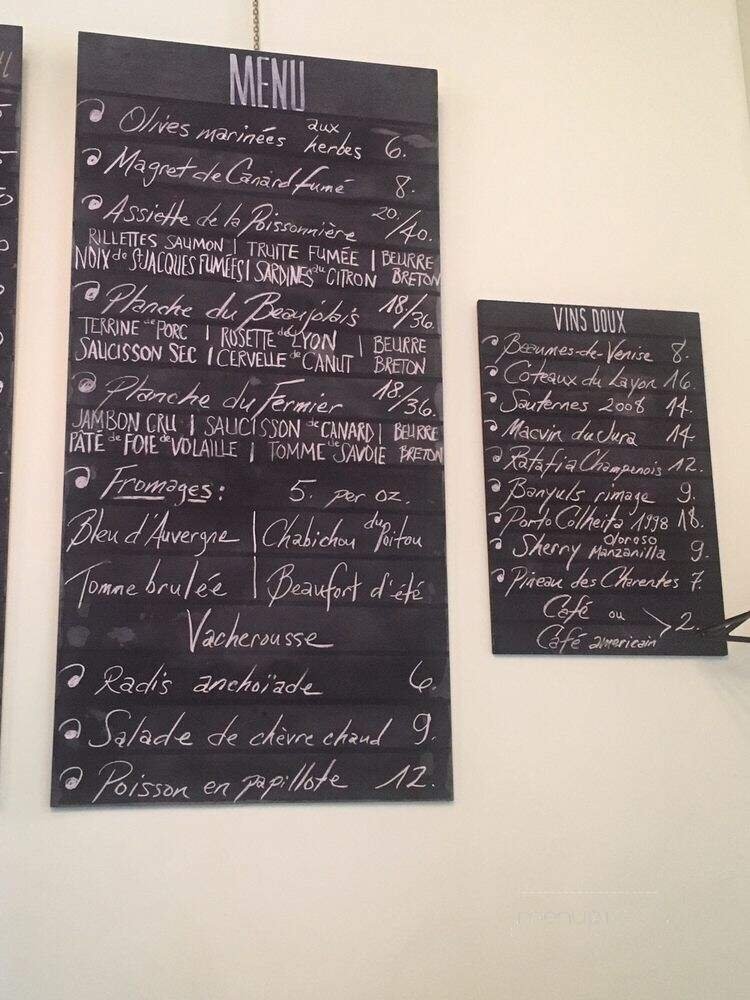 MENU
Olives marinées aux herbes 6.
Magret de Canard fumé 8.
Assiette de la Poissonnière 20/40.
RILLETTES SAUMON | TRUITE FUMÉE | BEURRE
NOIX de ST JACQUES FUMÉES | SARDINES au CITRON BRETON
Planche du Beaujolais 18/36.
TERRINE de PORC | ROSETTE de LYON | BEURRE
SAUCISSON SEC | CERVELLE de CANUT BRETON
Planche du Fermier 18/36.
JAMBON CRU | SAUCISSON de CANARD | BEURRE
PÂTÉ de FOIE de VOLAILLE | TOMME de SAVOIE BRETON
Fromages: 5. per oz.
Bleu d'Auvergne | Chabichou du Poitou
Tomme brulée | Beaufort d'été
Vacherousse
Radis anchoïade 6.
Salade de chèvre chaud 9.
Poisson en papillote 12.
VINS DOUX
Beaumes-de-Venise 8.
Coteaux du Layon 16.
Sauternes 2008 14.
Macvin du Jura 14.
Ratafia Champenois 12.
Banyuls rimage 9.
Porto Colheita 1998 18.
Sherry Oloroso Manzanilla 9.
Pineau des Charentes 7.
Café ou
Café americain 2.